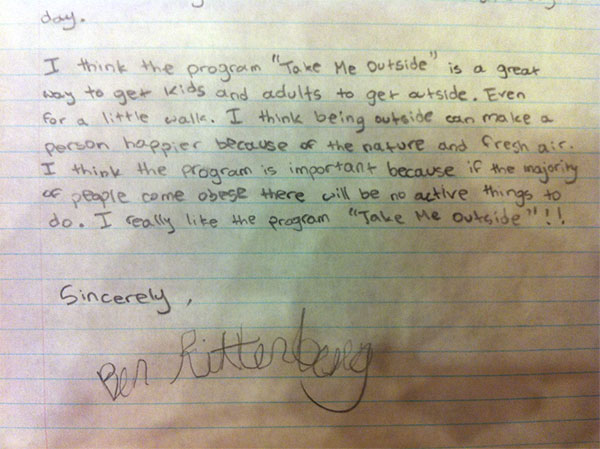 day.
I think the program "Take Me Outside" is a great
way to get kids and adults to get outside. Even
for a little walk. I think being outside can make a
person happier because of the nature and fresh air.
I think the program is important because if the majority
of people come obese there will be no active things to
do. I really like the program "Take Me Outside"!!
Sincerely,
Ben Rittenberg